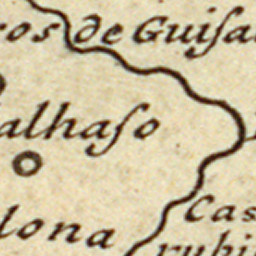 ros de Guiſa
alhaſo
lona
Cas
rubi